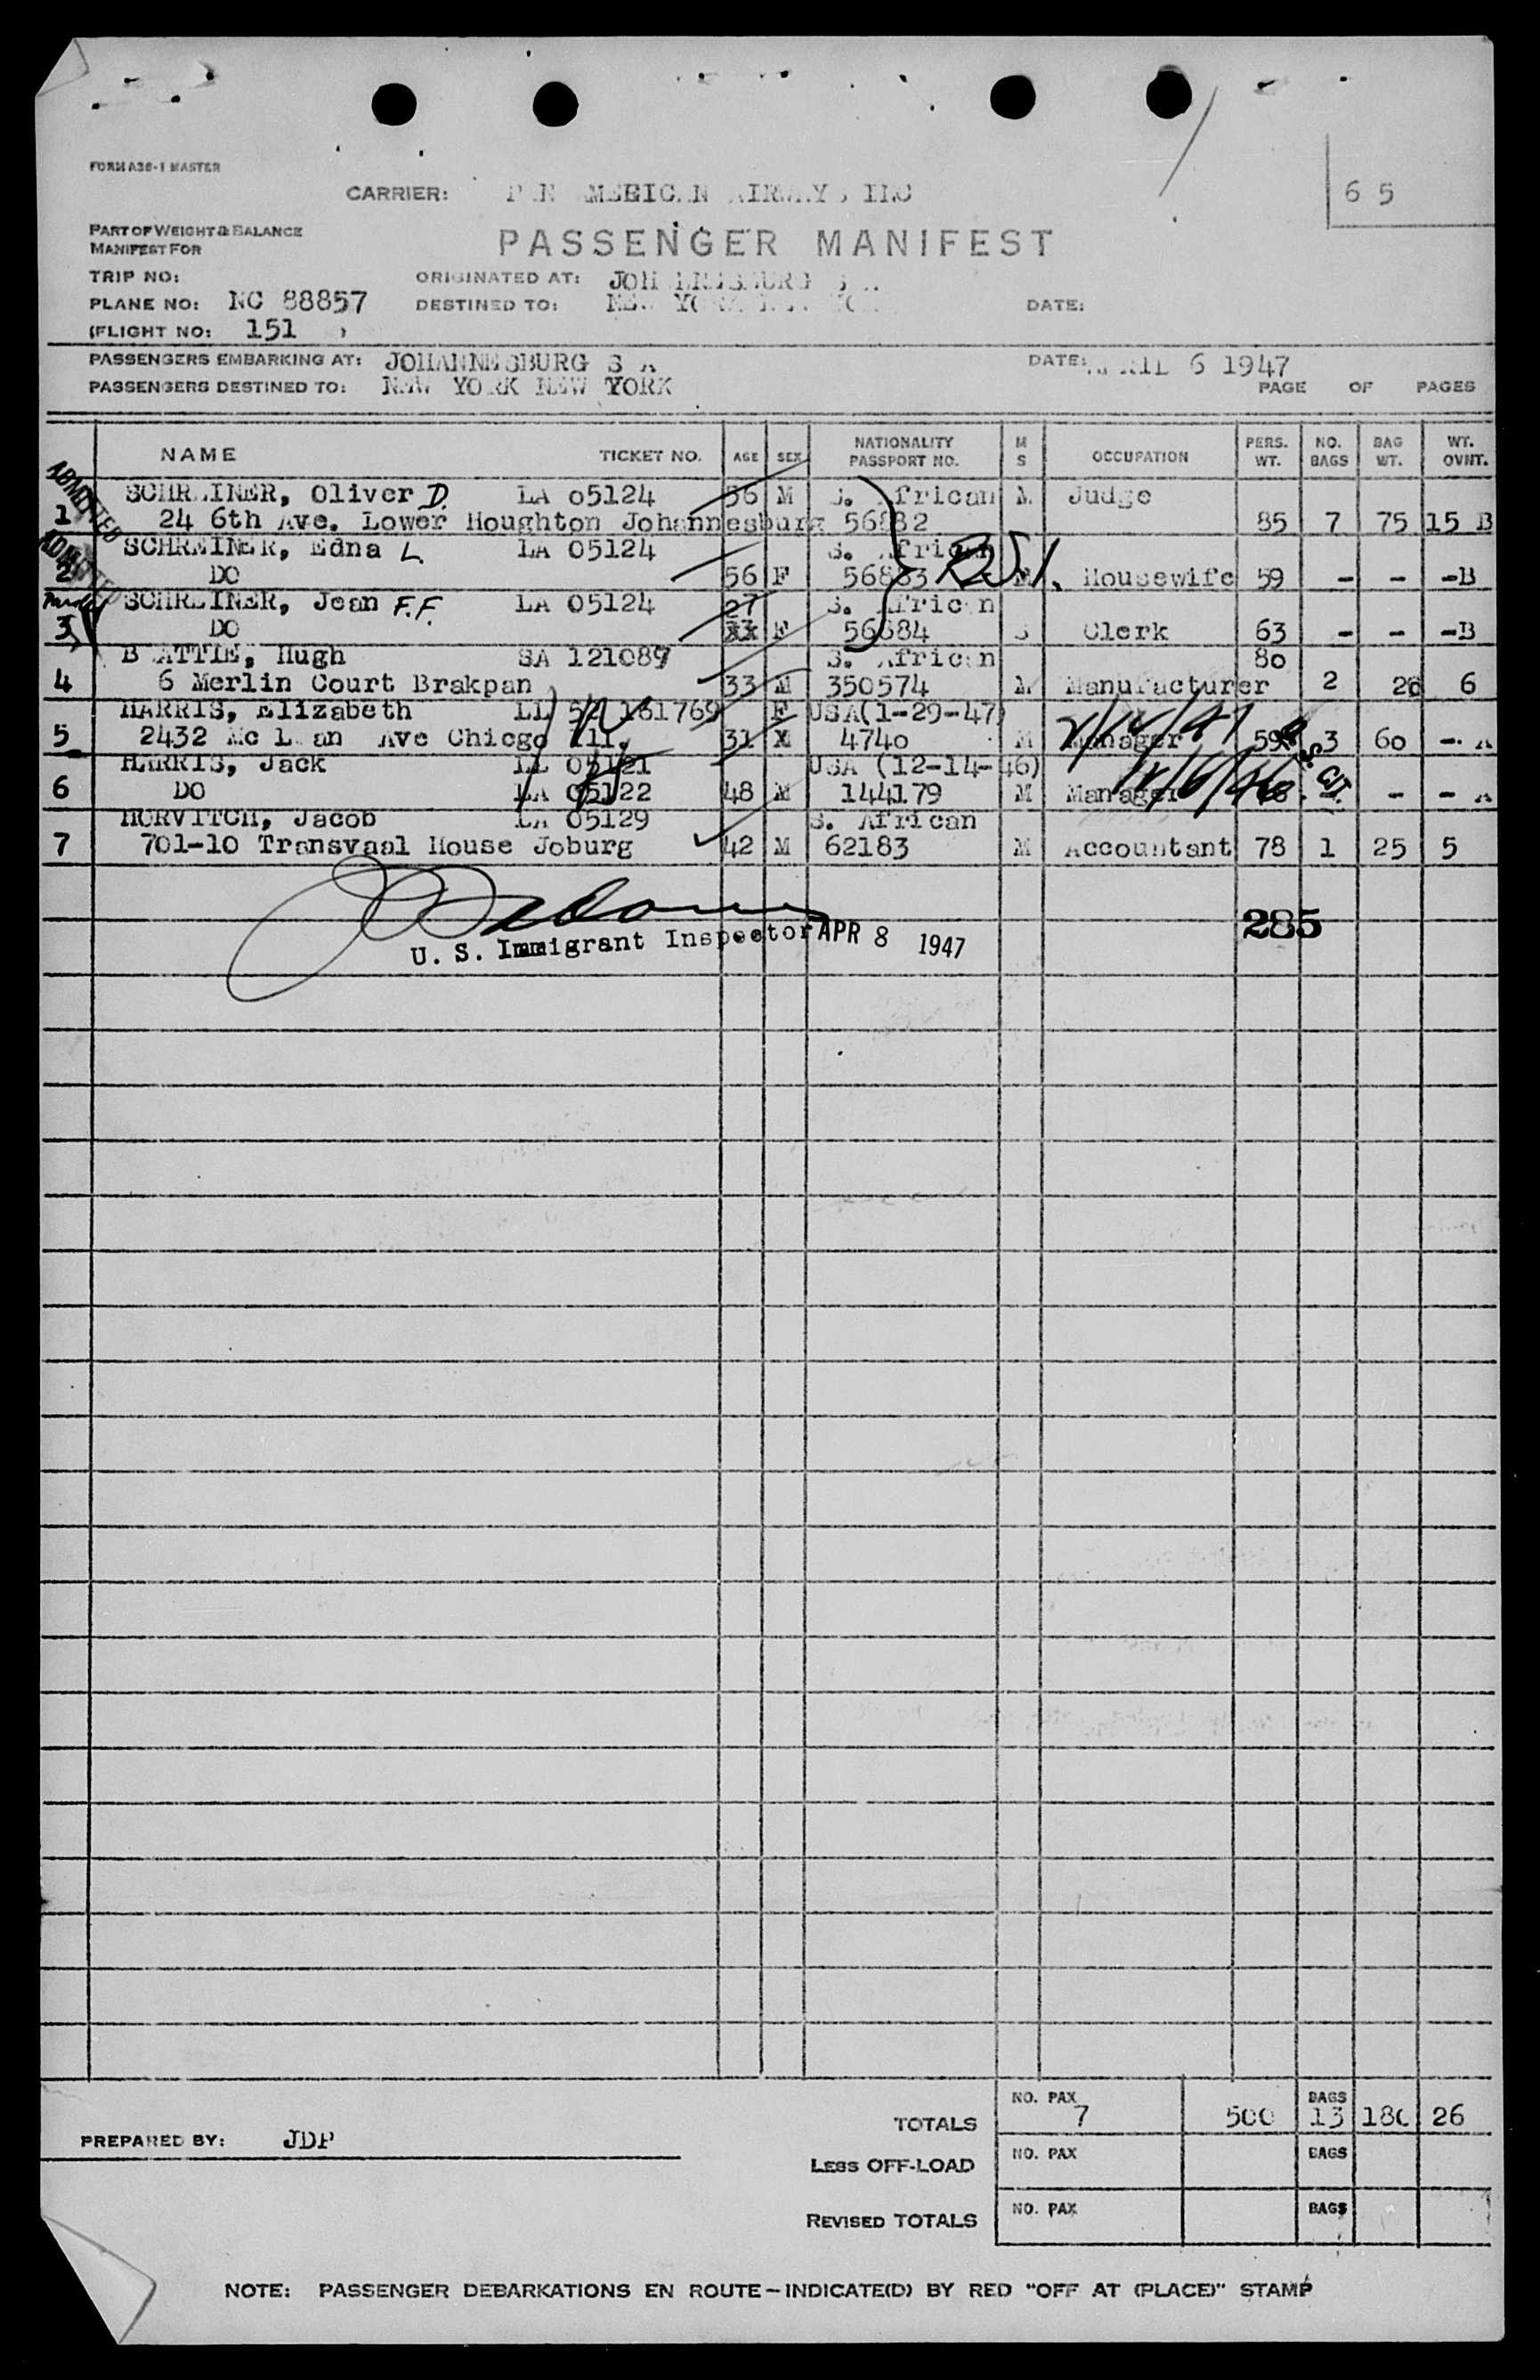 FORM A36-1 MASTER
CARRIER: P N MERIC N IRW Y , INC
6 5
PART OF WEIGHT & BALANCE
MANIFEST FOR
PASSENGER MANIFEST
TRIP NO: ORIGINATED AT:
PLANE NO: NC 88857 DESTINED TO: DATE:
(FLIGHT NO: 151 )
PASSENGERS EMBARKING AT: JOHANNESBURG S A DATE: APRIL 6 1947
PASSENGERS DESTINED TO: NEW YORK NEW YORK PAGE OF PAGES
NAME TICKET NO. AGE SEX NATIONALITY PASSPORT NO. M S OCCUPATION PERS. WT. NO. BAGS BAG WT. WT. OVNT.
ADMITTED
1 SCHREINER, Oliver D. LA 05124 56 M S. African M Judge
24 6th Ave. Lower Houghton Johannesburg 56882 85 7 75 15 B
ADMITTED
2 SCHREINER, Edna L. LA 05124 S. African
DO 56 F 56883 M Housewife 59 - - -B
3 SCHREINER, Jean F.F. LA 05124 27 S. African
DO xx F 56884 S Clerk 63 - - -B
B ATTIE, Hugh SA 121089 S. African 80
4 6 Merlin Court Brakpan 33 M 350574 M Manufacturer 2 20 6
HARRIS, Elizabeth 161769 F USA(1-29-47)
5 2432 Mc L an Ave Chicgo Ill. 31 X 4740 M Manager 59 3 60 - A
HARRIS, Jack LL 05121 USA (12-14-46)
6 DO LA 05122 48 M 144179 M Manager - - A
U.S. CIT.
HORVITCH, Jacob LA 05129 S. African
7 701-10 Transvaal House Joburg 42 M 62183 M Accountant 78 1 25 5
285
U. S. Immigrant Inspector APR 8 1947
TOTALS NO. PAX 7 500 BAGS 13 180 26
PREPARED BY: JDP
LESS OFF-LOAD NO. PAX BAGS
REVISED TOTALS NO. PAX BAGS
NOTE: PASSENGER DEBARKATIONS EN ROUTE - INDICATE(D) BY RED "OFF AT (PLACE)" STAMP